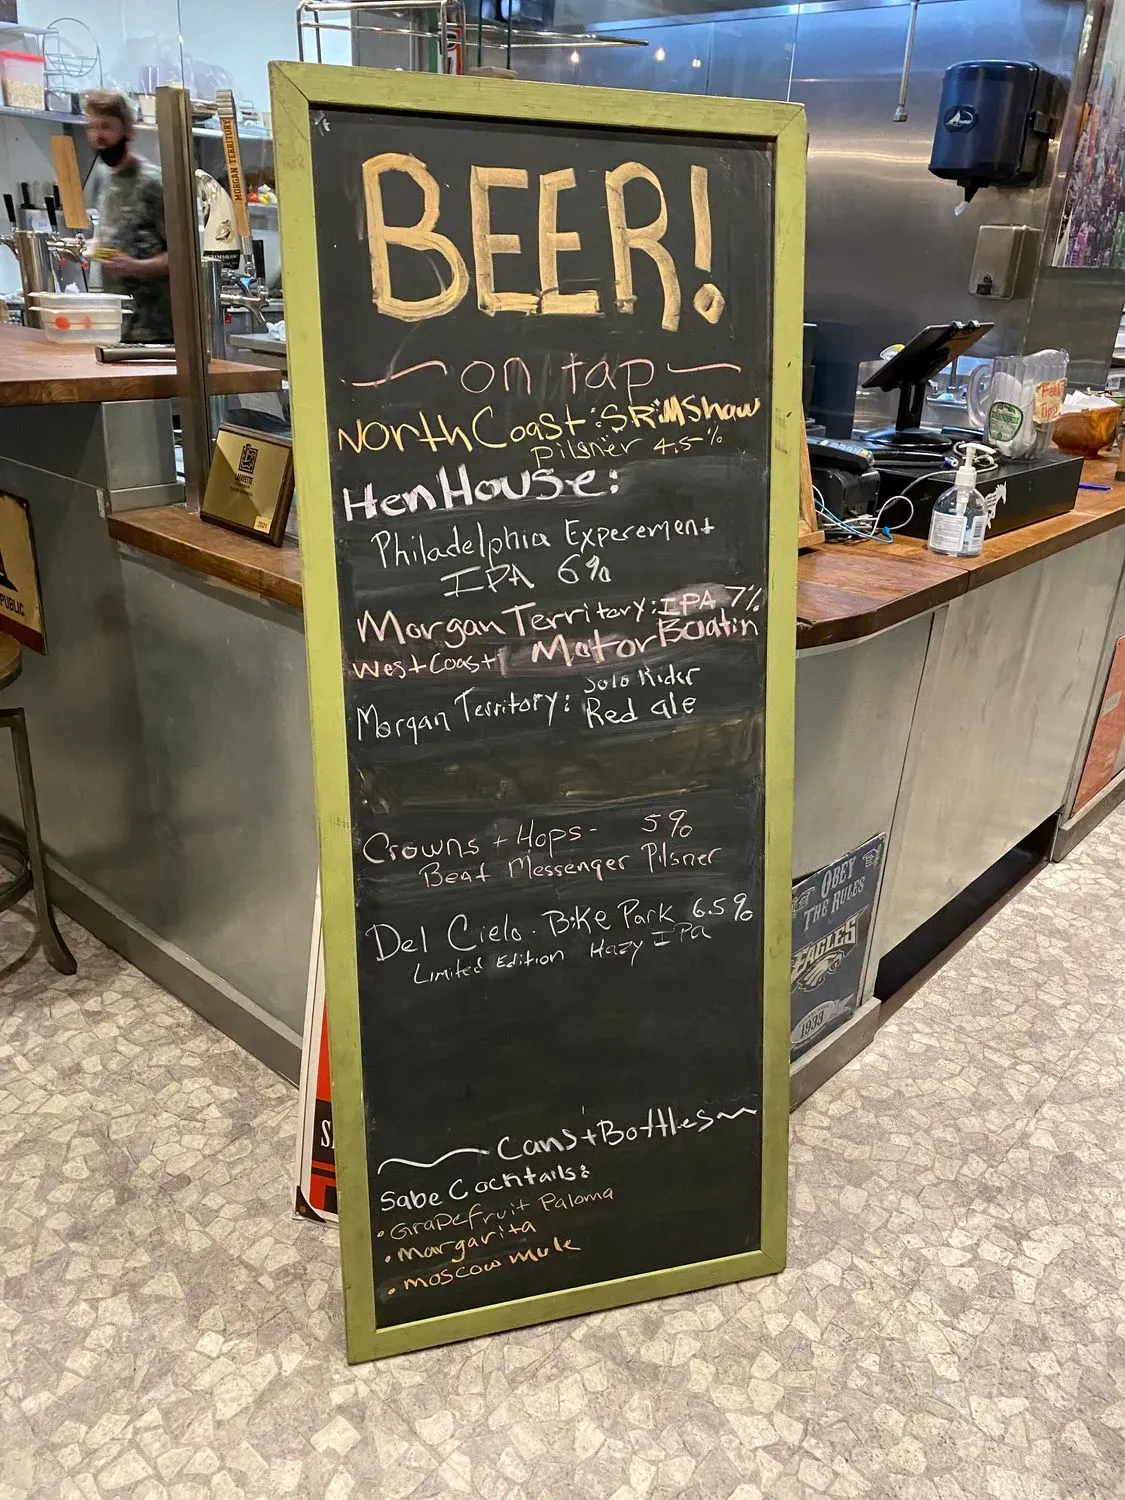 BEER!
on tap
North Coast: SCRIMSHAW
Pilsner 4.5%
HenHouse:
Philadelphia Experement
IPA 6%
Morgan Territory: IPA 7%
West Coast MotorBoatin
Morgan Territory: Solo Rider
Red ale
Crowns + Hops- 5%
Beat Messenger Pilsner
Del Cielo. Bike Park 6.5%
Limited Edition Hazy IPA
Cans + Bottles
Sabe Cocktails:
• Grapefruit Paloma
• Margarita
• Moscow Mule
MORGAN TERRITORY
LAFAYETTE
2021
PUBLIC
Tips
OBEY
THE RULES
EAGLES
1933